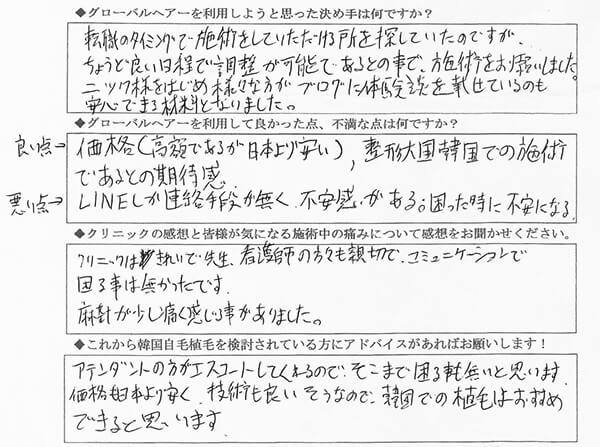 ◆グローバルヘアーを利用しようと思った決め手は何ですか？
転職のタイミングで施術をしていただける所を探していたのですが、
ちょうど良い日程で調整が可能であるとの事で、施術をお願いしました。
ニック様をはじめ様々な方がブログに体験談を載せているのも
安心できる材料となりました。
◆グローバルヘアーを利用して良かった点、不満な点は何ですか？
良い点→ 価格(高額であるが日本より安い)、整形大国韓国での施術
であるとの期待感
悪い点→ LINEしか連絡手段が無く、不安感がある。困った時に不安になる。
◆クリニックの感想と皆様が気になる施術中の痛みについて感想をお聞かせください。
クリニックはきれいで先生、看護師の方々も親切で、コミュニケーションで
困る事は無かったです。
麻酔が少し痛く感じる事がありました。
◆これから韓国自毛植毛を検討されている方にアドバイスがあればお願いします！
アテンダントの方がエスコートしてくれるので、そこまで困る事も無いと思います
価格も日本より安く、技術も良いそうなので、韓国での植毛はおすすめ
できると思います